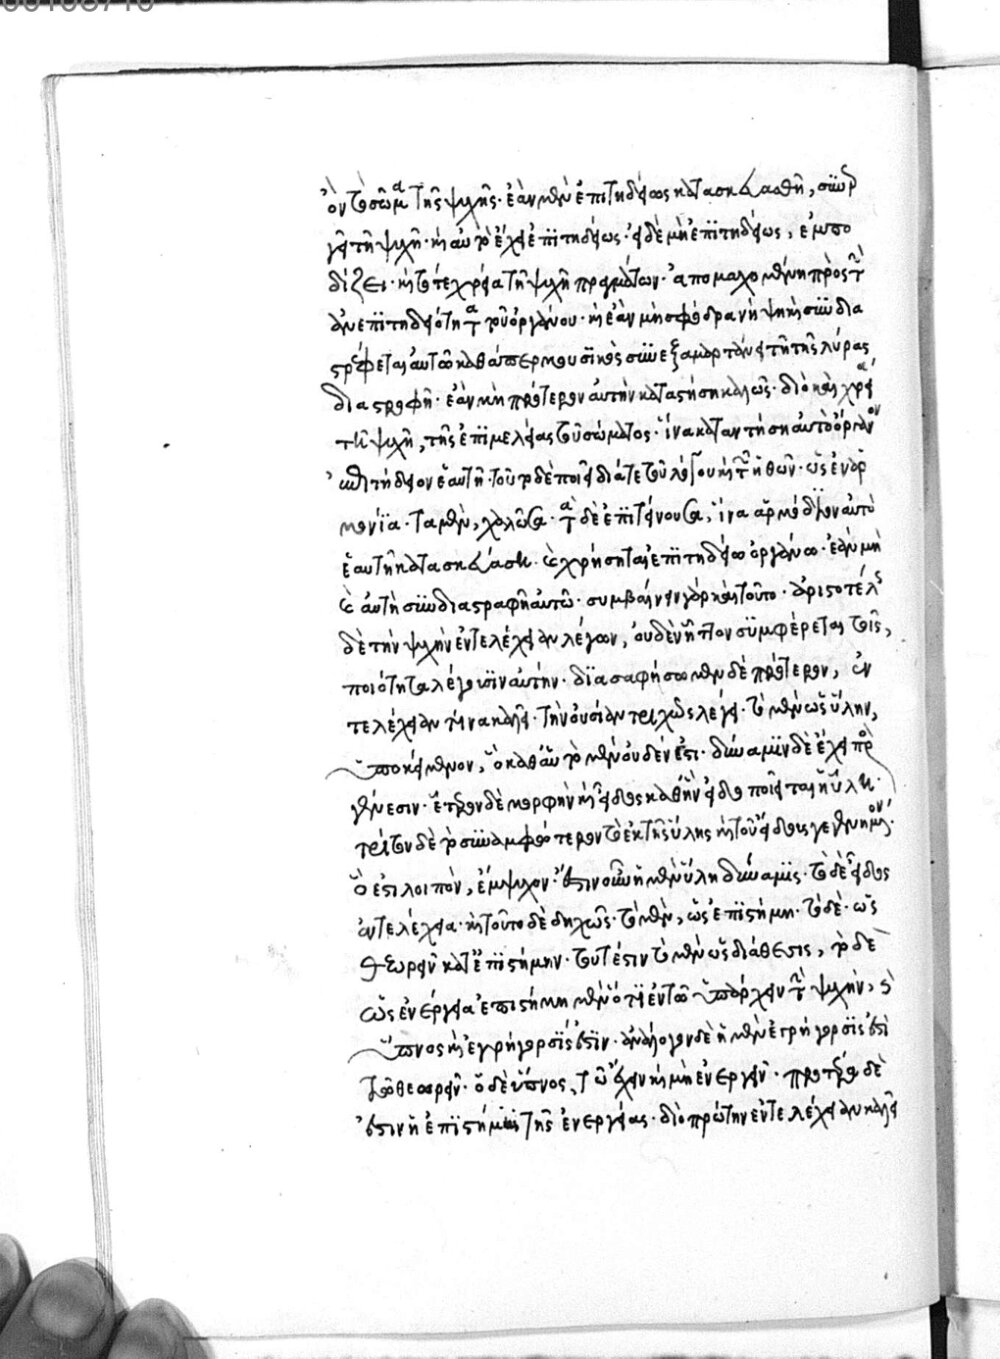 ὸν τὸ σῶμα τῆς ψυχῆς· ἐὰν μὲν ἐπιτηδείως κατασκευασθῆ, συνερ
γεῖ τῆ ψυχῆ· καὶ αὐτὸ ἔχει ἐπιτηδείως· εἰ δὲ μὴ ἐπιτηδείως, ἐμπο
δίζει· καὶ τότε χρεία τῆ ψυχῆ πραγμάτων· ἀπομαχομένη πρὸς τὴν
ἀνεπιτηδειότητα τοῦ ὀργάνου· καὶ ἐὰν μὴ σφόδρα νήψη καὶ συνδια
στρέφεται αὐτῶ καθάπερ μουσικὸς συνεξαμαρτάνει τῆ τῆς λύρας
διαστροφῆ· ἐὰν μὴ πρότερον αὐτὴν καταστήση καλῶς· διὸ καὶ χρεία
τῆ ψυχῆ, τῆς ἐπιμελείας τοῦ σώματος· ἵνα καταντήση αὐτὸ ὄργανον
ἐπιτήδειον ἑαυτῆ· τοῦτο δὲ ποιεῖ διά τε τοῦ λόγου καὶ τῶν ἠθῶν· ὡς ἐν ἁρ
μονία· τὰ μὲν, χαλῶσα· τὰ δὲ ἐπιτείνουσα, ἵνα ἁρμόδιον αὐτὸ
ἑαυτῆ κατασκευάση· καὶ χρήσηται ἐπιτηδείω ὀργάνω· ἐὰν μὴ
καὶ αὐτὴ συνδιαστραφῆ αὐτῶ· συμβαίνει γὰρ καὶ τοῦτο· ἀριστοτέλης
δὲ τὴν ψυχὴν ἐντελέχειαν λέγων, οὐδὲν ἧττον συμφέρεται τοῖς,
ποιότητα λέγουσιν αὐτήν· διασαφήσωμεν δὲ πρότερον, ἐν
τελέχειαν τίνα καλεῖ· τὴν οὐσίαν τριχῶς λέγει· τὸ μὲν ὡς ὕλην,
ὑποκείμενον, ὃ καθ' ἑαυτὸ μὲν οὐδέν ἐστι· δύναμιν δὲ ἔχει πρὸς
γένεσιν· ἕτερον δὲ μορφὴν καὶ εἶδος καθ' ἣν εἰδοποιεῖται ἡ ὕλη·
τρίτον δὲ τὸ συναμφότερον τὸ ἐκ τῆς ὕλης καὶ τοῦ εἴδους γεγενημένον·
ὅ ἐστι λοιπὸν, ἔμψυχον· ἔστιν οὖν ἡ μὲν ὕλη δύναμις· τὸ δὲ εἶδος
ἐντελέχεια· καὶ τοῦτο δὲ διχῶς· τὸ μὲν, ὡς ἐπιστήμη· τὸ δὲ· ὡς
θεωρεῖν κατ' ἐπιστήμην· τουτέστιν τὸ μὲν ὡς διάθεσις, τὸ δὲ
ὡς ἐνέργεια ἐπιστήμη μὲν ὅτι ἐν τῶ ὑπάρχειν τὴν ψυχὴν, καὶ
ὕπνος καὶ ἐγρήγορσίς ἐστιν· ἀνάλογον δὲ ἡ μὲν ἐγρήγορσίς ἐστι
τῶ θεωρεῖν· ὁ δὲ ὕπνος, τῶ ἔχειν καὶ μὴ ἐνεργεῖν· προτέρα δὲ
ἐστιν ἡ ἐπιστήμη τῆς ἐνεργείας· διὸ πρώτην ἐντελέχειαν καλεῖ